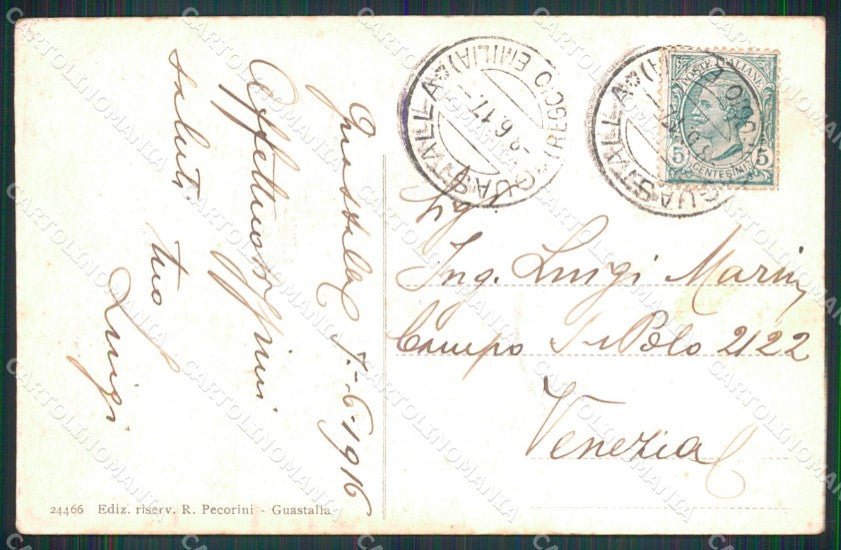 Guastalla 7-6-1916
Affettuosissimi
saluti
tuo
Luigi
24466 Ediz. riserv. R. Pecorini - Guastalla
GUASTALLA (REGGIO EMILIA)
6.17.
GUASTALLA
POSTE ITALIANE
5 CENTESIMI 5
Sig
Ing. Luigi Marin
Campo S. Polo 2122
Venezia
CARTOLINOMANIA